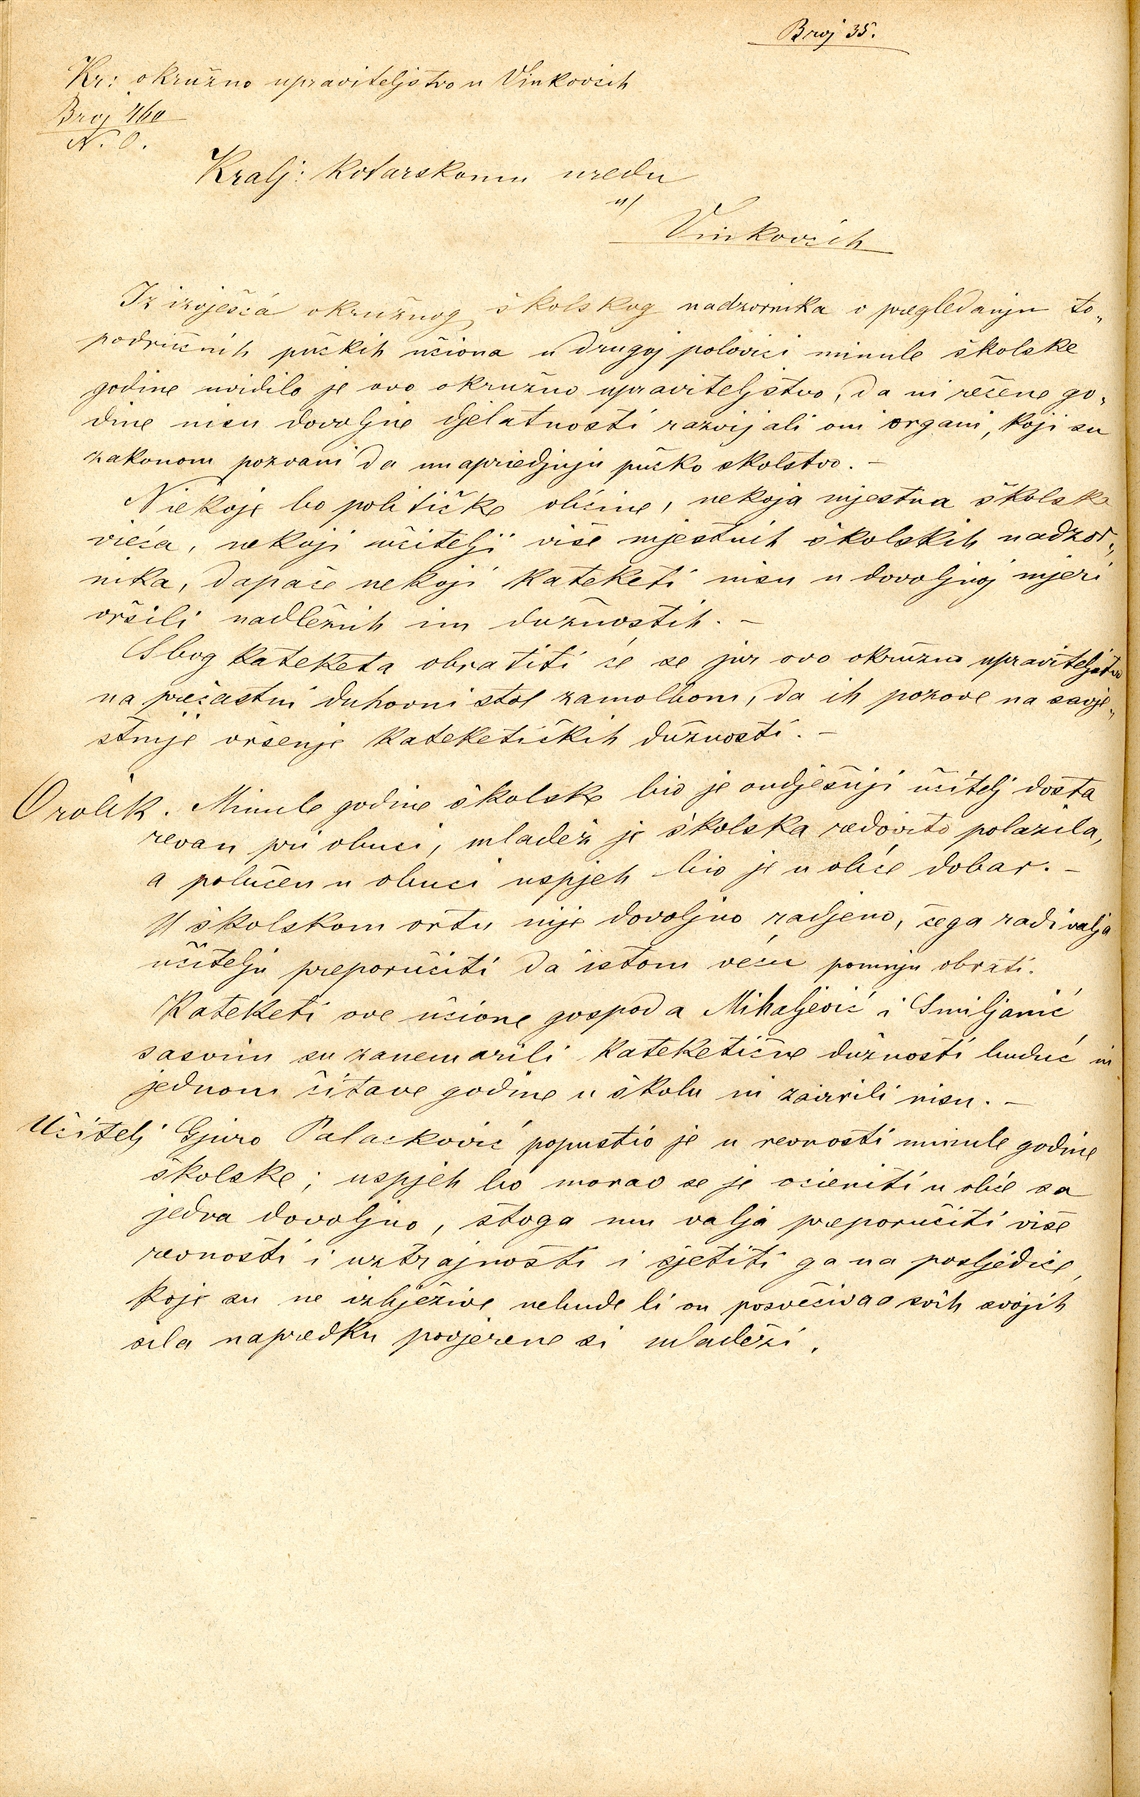 Broj 35.
Kr: okružno upraviteljstvo u Vinkovcih
Broj 460
N. O.
Kralj: kotarskomu uredu
u/
Vinkovcih
Iz izvješća okružnog školskog nadzornika o pregledanju to-
područnih pučkih učiona u drugoj polovici minule školske
godine uvidilo je ovo okružno upraviteljstvo, da ni rečene go-
dine nisu dovoljne djelatnosti razvijali oni organi, koji su
zakonom pozvani da unapriedjuju pučko školstvo. -
Niekoje bo političke obćine, nekoja mjestna školska
vieća, nekoji učitelji više mjestnih školskih nadzor-
nika, dapače nekoji kateketi nisu u dovoljnoj mjeri
vršili nadležnih im dužnostih. -
Sbog kateketa obratiti će se jur ovo okružno upraviteljstvo
na prečastni duhovni stol zamolbom, da ih pozove na savje-
stnije vršenje kateketičkih dužnosti. -
Orolik. Minule godine školske bio je ondješnji učitelj dosta
revan pri obuci, mladež je školska redovito polazila,
a polučen u obuci uspjeh bio je u obće dobar. -
U školskom vrtu nije dovoljno radjeno, čega radi valja
učitelju preporučiti da istom veću pomnju obrati.
Kateketi ove učione gospoda Mihaljević i Smiljanić
sasvim su zanemarili kateketične dužnosti buduć ni
jednom čitave godine u školu ni zavirili nisu. -
Učitelj Gjuro Palacković popustio je u revnosti minule godine
školske; uspjeh bo morao se je ocieniti u obće sa
jedva dovoljno, stoga mu valja preporučiti više
revnosti i uztrajnosti i sjetiti ga na posljedice,
koje su ne izbježive nebude li on posvećivao svih svojih
sila napredku povjerene si mladeži.